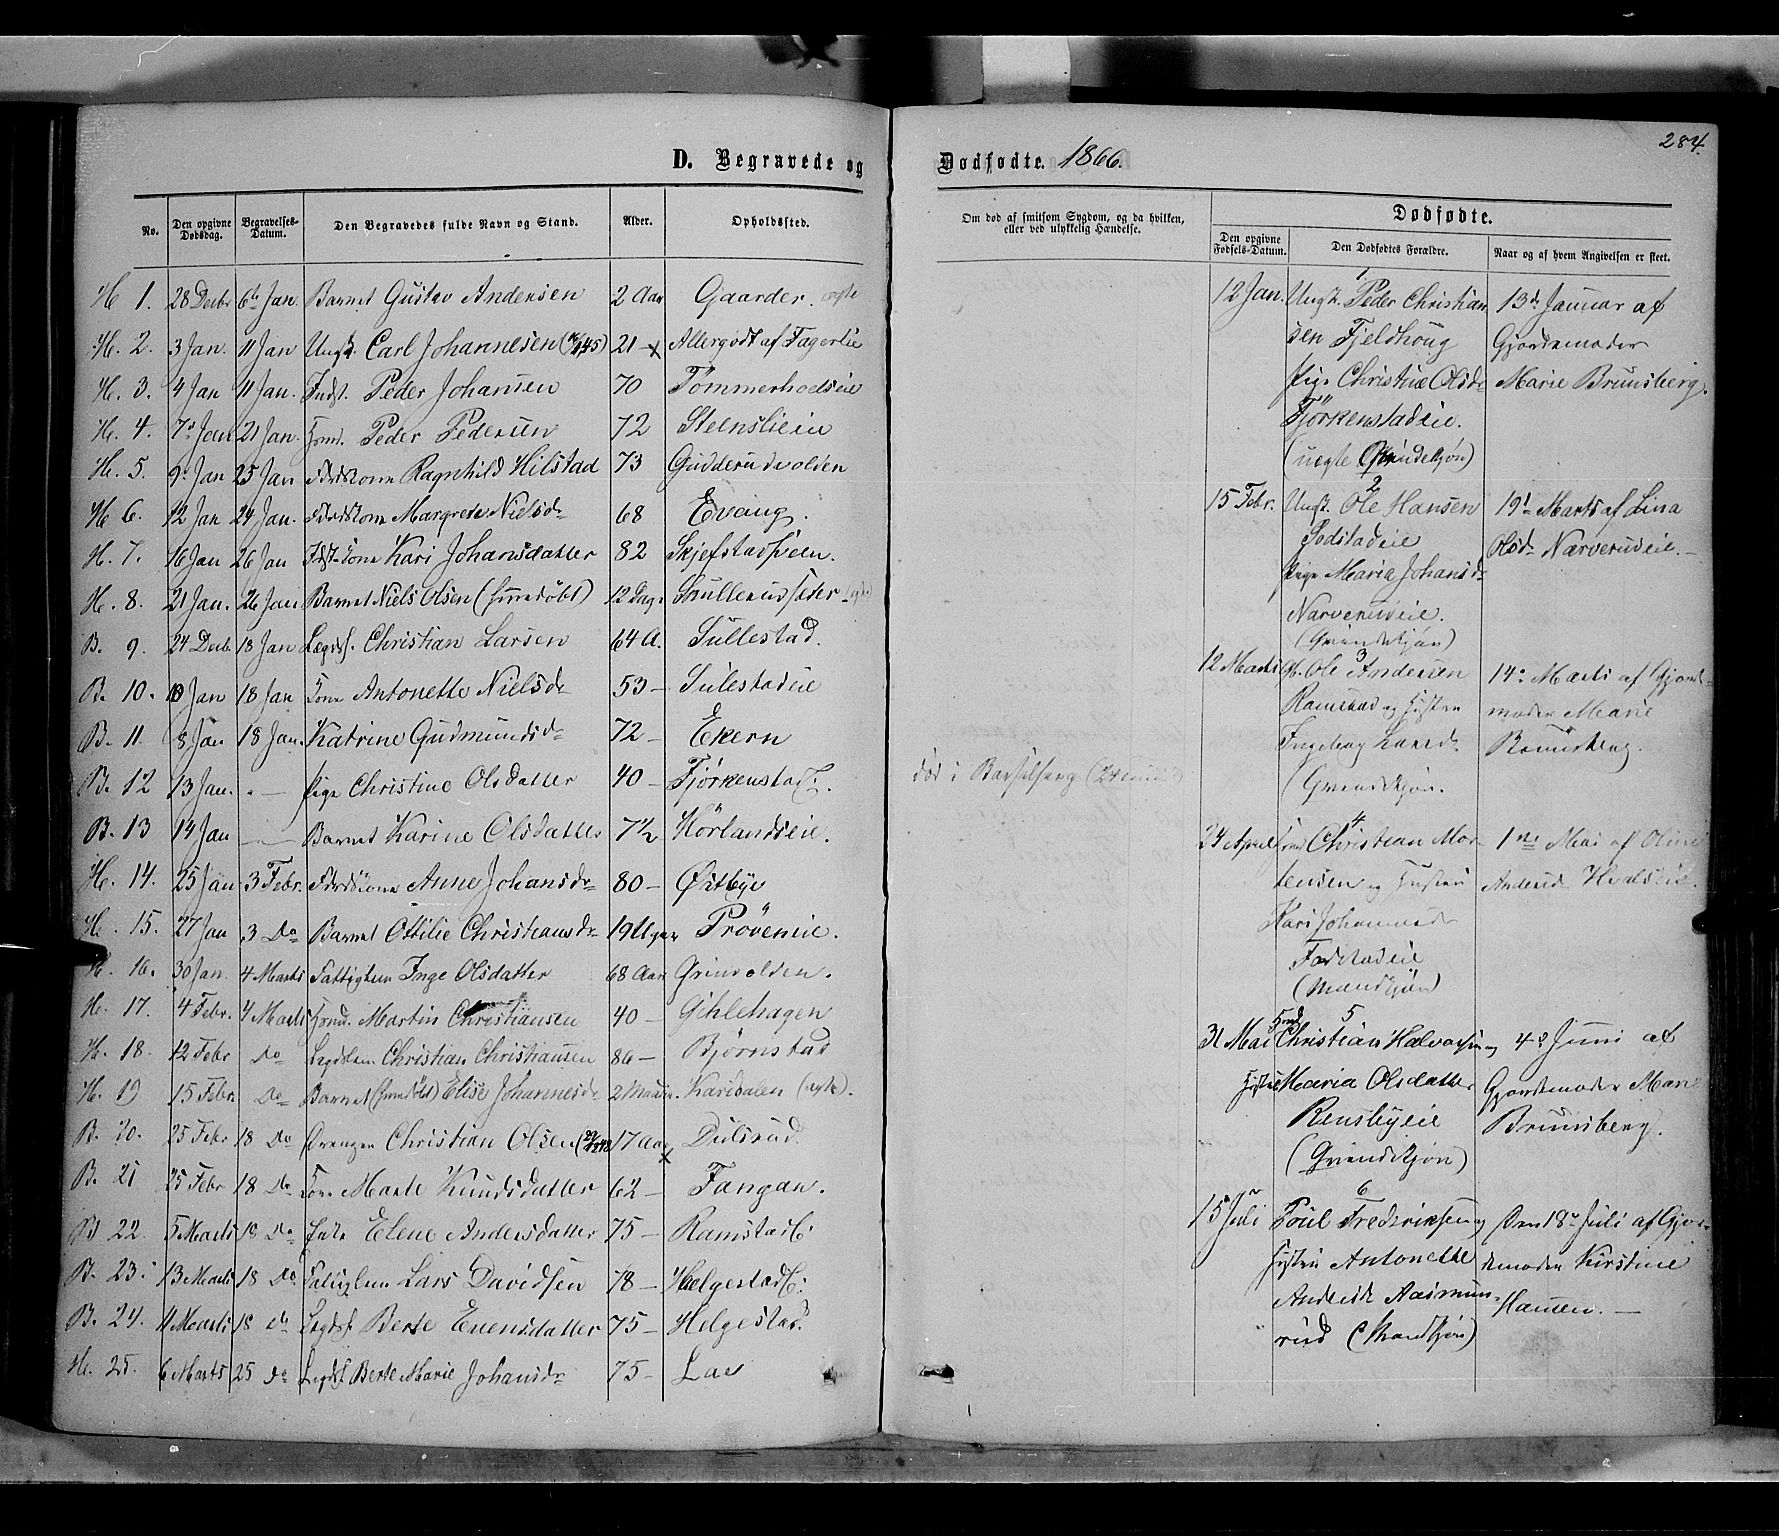 284.
D. Begravede og Dødfødte. 1866.
No. Den opgivne Dødsdag. Begravelses-Datum. Den Begravedes fulde Navn og Stand. Alder. Opholdssted.
Om død af smitsom Sygdom, og da hvilken, eller ved ulykkelig Hændelse.
Dødfødte.
Den opgivne Fødsels-Datum. Den Dødfødtes Forældre. Naar og af hvem Angivelsen er skeet.
H 1. 28 Decbr 6te Jan. Barnet Gustav Andersen 2 Aar Gaarder. ægte
H. 2. 3 Jan. 11 Jan Ungk. Carl Johannesen 21 - x Allergodt af Fagerlie
H. 3. 4 Jan 11 Jan. Indst. Peder Johansen 70 Tömmerhodseie
H. 4. 7d Jan 21 Jan. Peder Pedersen 72 Steenslieie
H. 5. 9. Jan 25 Jan Ragnhild Hilstad 73 Gudderudvolden
H 6. 12 Jan 24 Jan. Margrete Nielsdr 68 Evang.
H. 7. 16 Jan 26 Jan Kari Johansdatter 82 Skjefstadsveen.
H. 8. 21 Jan. 26 Jan. Barnet Niels Olsen (hjemdøbt) 12 Dage
B. 9. 24 Decb. 18 Jan Lægdsl. Christian Larsen 64 A. Sullestad.
B. 10. 13 Jan 18 Jan Kone Antonette Nielsdr 53 - Sulestadeie
B. 11. 8 Jan 18 Jan. Katrine Gudmundsdr 72 - Ekern
B. 12 13 Jan. - Pige Christine Olsdatter 40 - Fjörkenstad E. død i Barselseng
B. 13 14 Jan - Barnet Karine Olsdatter 7½ Hörlandseie.
H. 14. 25 Jan 3 Febr. Anne Johansdr 80 - Østbye
H. 15. 27 Jan 3 Do Barnet Ottilie Christiansdr 19 Uger Pröveneie.
H. 16. 30 Jan. 4 Marts Fattiglem Inge Olsdatter 68 Aar Grinvolden.
H. 17. 4 Febr. 4 Marts Gmd. Martin Christiansen 40 - Gihlehagen
H. 18. 12 Febr Do Lægdslem Christian Christiansen 86 - Bjørnstad
H. 19 15 Febr. Do Barnet (hjemdöbt) Elise Johannesdr 2 Maan. Kardalen (ægte).
B. 20. 25 Febr 18 Do Drengen Christian Olsen 17 Aar x Dulsrud.
B. 21 25 Febr 18 Do Kone Marte Knudsdatter 62 - Fangan.
B 22. 5 Marts 18 Do Elene Andersdatter 75 - Ramstad E.
B. 23. 13 Marts 18 Do Fattiglem Lars Davidsen 78 - Helgestad E.
B. 24. 11 Marts 18 do Lægdsl Berte Evensdatter 75 - Helgestad.
H. 25. 6 Marts 25 Do Lægdsl Berte Marie Johansdr 75 -
12 Jan. 1 Ungk. Peder Christian 13de Januar af
sen Fjeldhoug Gjordemoder
Pige Christine Olsdr Marie Brunsberg.
Fjörkenstadeie.
(uægte Qvindekjøn)
15 Febr. 2 Ungk. Ole Hansen 19d Marts af Lina
Sodstadeie Olsdr Narverudeie. -
Pige Maria Johansdr
Narverudeie.
(Qvindekjøn)
12 Marts 3 Ole Andersen 14. Marts af Gjorde-
Ramstad og Hustru moder Marie
Ingeborg Larsdr Brunsberg.
(Qvindekjøn.
24 April 4 Christian Mor- 1ne Mai af Oline
tensen og Hustru Andersd Hvalseie.
Kari Johannesdr
Fodstadeie
(Mandkjøn)
31 Mai 5 Christian Halvorsen og 4de Juni af
Hustrue Maria Olsdatter Gjordemoder Marie
Rensbyeie Brunsberg.
(Qvindekjøn)
15 Juli 6 Poul Fredriksen og Den 18de Juli af Gjor-
Hustru Antonette demoder Kirstine
Andersdr Aasmun- Hansen. -
rud (Mandkjøn)